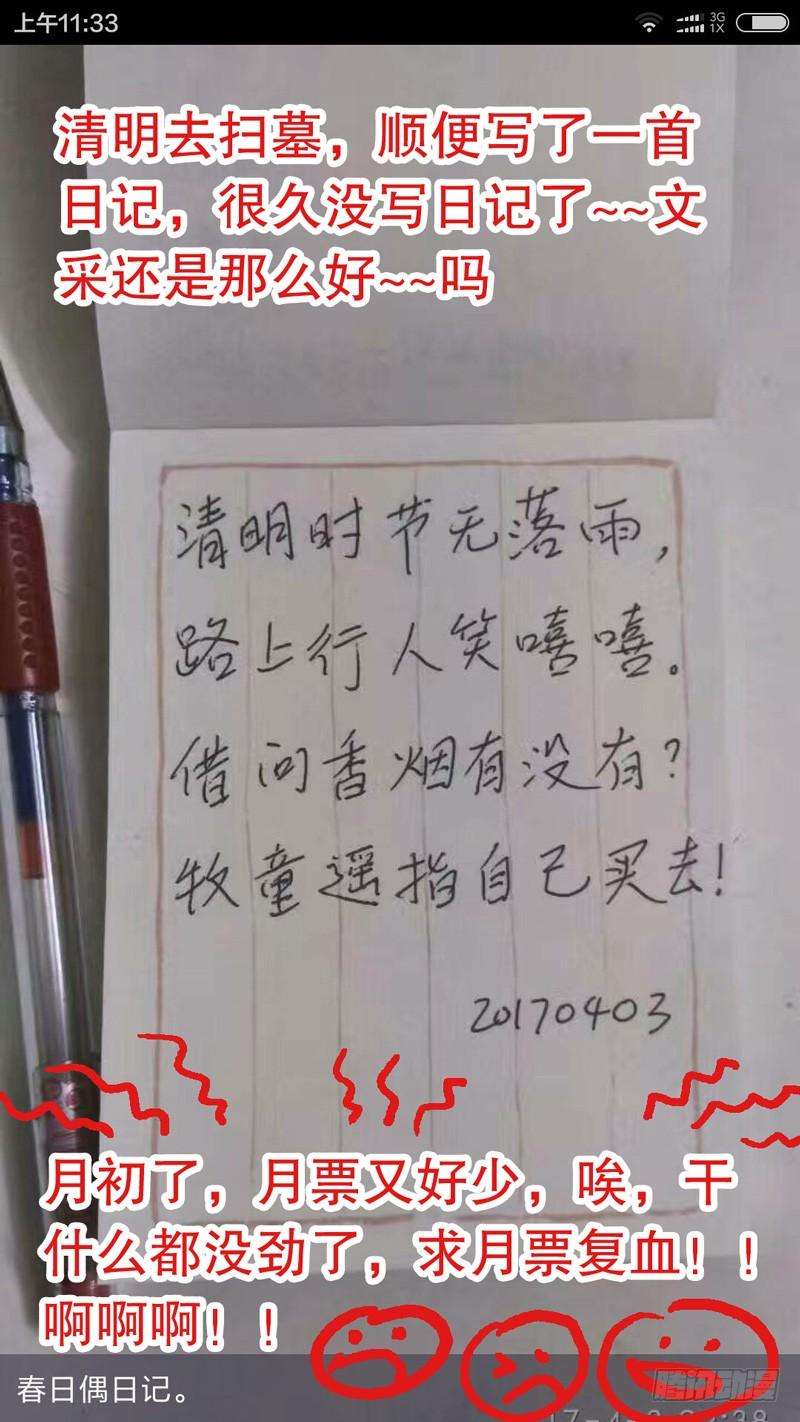 上午11:33
3G
1X
清明去扫墓，顺便写了一首
日记，很久没写日记了~~文
采还是那么好~~吗
清明时节无落雨，
路上行人笑嘻嘻。
借问香烟有没有？
牧童遥指自己买去！
20170403
月初了，月票又好少，唉，干
什么都没劲了，求月票复血！！
啊啊啊！！
春日偶日记。
腾讯动漫